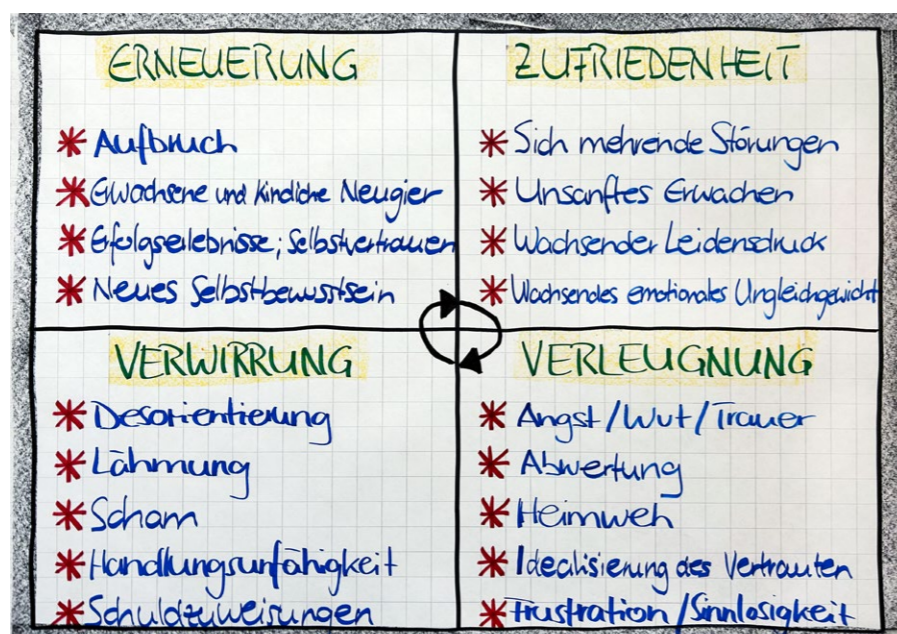 ERNEUERUNG
* Aufbruch
* Erwachsene und kindliche Neugier
* Erfolgserlebnisse; Selbstvertrauen
* Neues Selbstbewusstsein
ZUFRIEDENHEIT
* Sich mehrende Störungen
* Unsanftes Erwachen
* Wachsender Leidensdruck
* Wachsendes emotionales Ungleichgewicht
VERWIRRUNG
* Desorientierung
* Lähmung
* Scham
* Handlungsunfähigkeit
* Schuldzuweisungen
VERLEUGNUNG
* Angst/Wut/Trauer
* Abwertung
* Heimweh
* Idealisierung des Vertrauten
* Frustration/Sinnlosigkeit